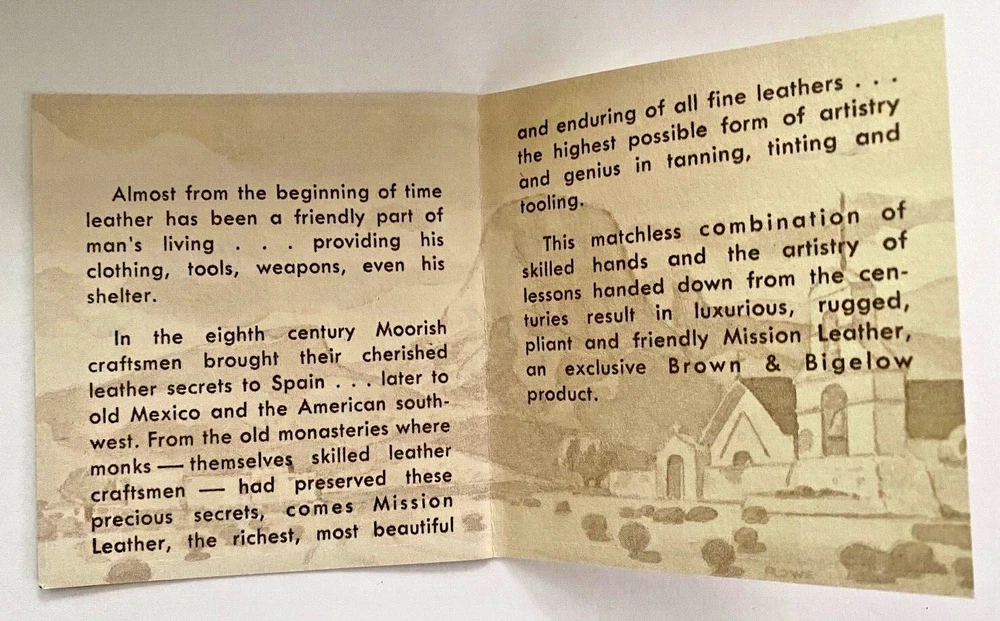 Almost from the beginning of time
leather has been a friendly part of
man's living . . . providing his
clothing, tools, weapons, even his
shelter.
In the eighth century Moorish
craftsmen brought their cherished
leather secrets to Spain . . . later to
old Mexico and the American south-
west. From the old monasteries where
monks — themselves skilled leather
craftsmen — had preserved these
precious secrets, comes Mission
Leather, the richest, most beautiful
and enduring of all fine leathers . . .
the highest possible form of artistry
and genius in tanning, tinting and
tooling.
This matchless combination of
skilled hands and the artistry of
lessons handed down from the cen-
turies result in luxurious, rugged,
pliant and friendly Mission Leather,
an exclusive Brown & Bigelow
product.
ROWE